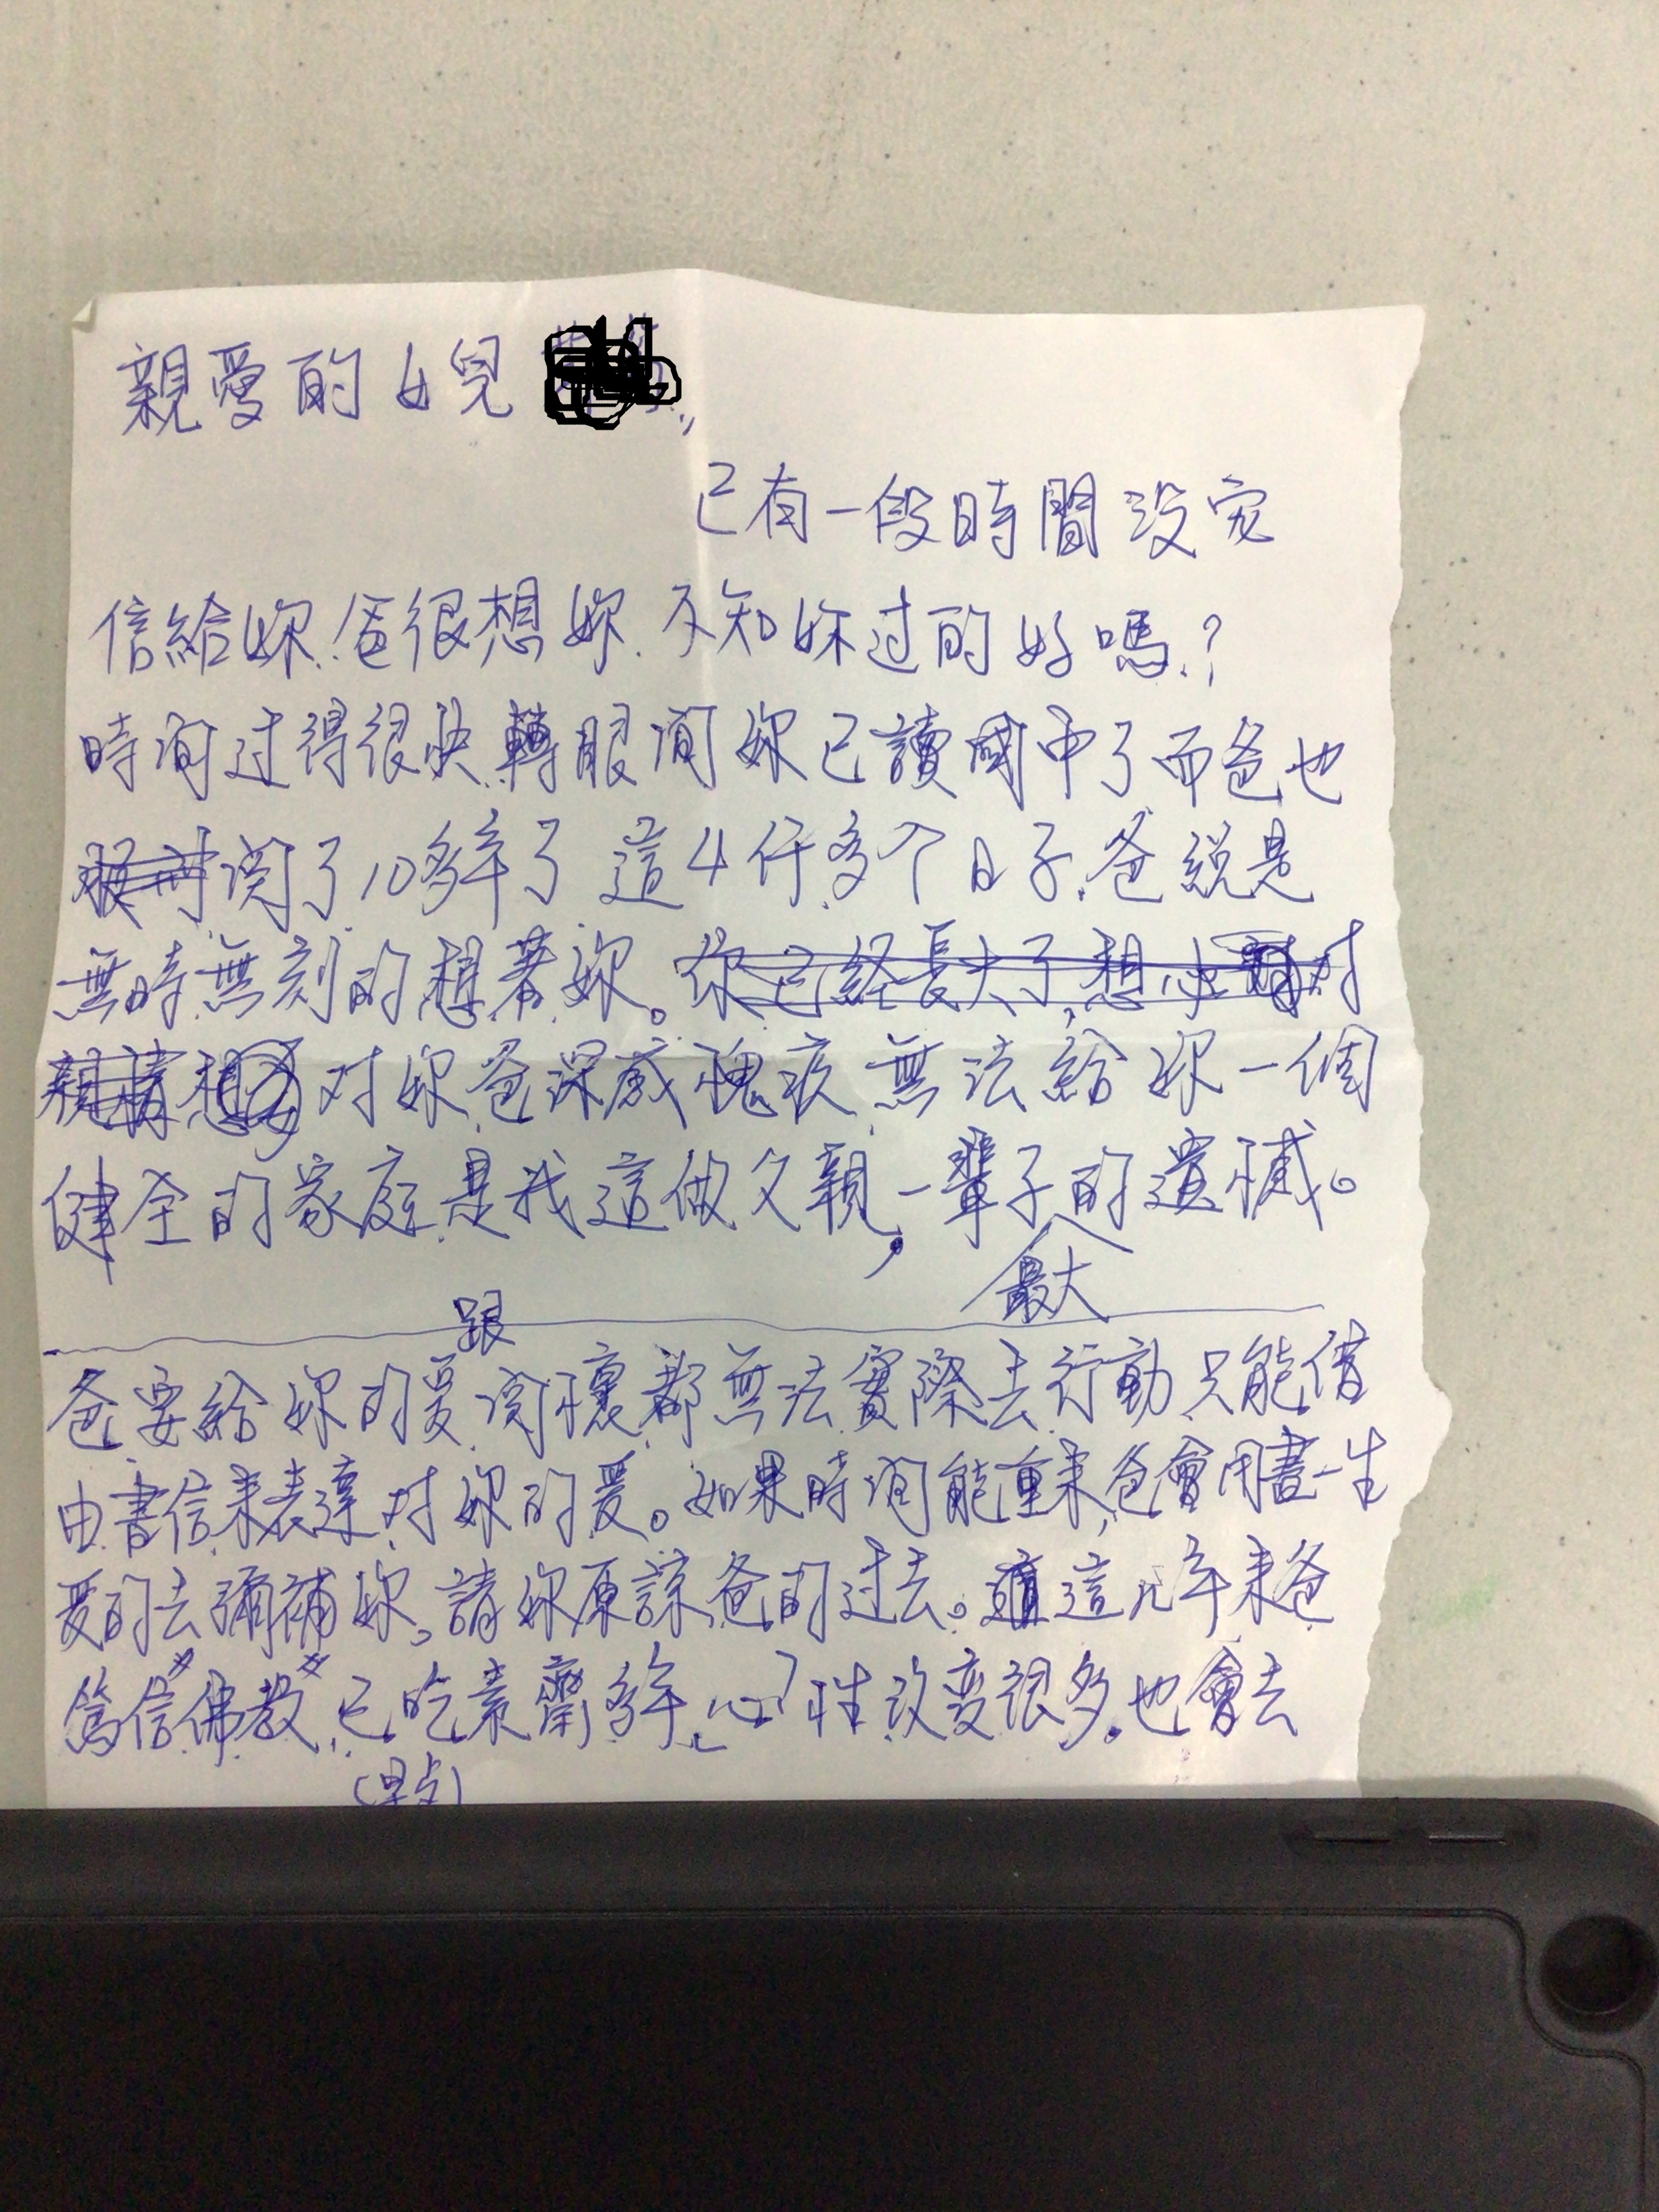 親愛的女兒
已有一段時間沒寫
信給妳.爸很想妳.不知妳过的好嗎?
時间过得很快轉眼间妳已讀國中了而爸也
関了10多年了 這4仟多个日子.爸説是
無時無刻的想著妳。你已经長大了,想
想 对妳爸深感愧疚無法給妳一個
健全的家庭是我這做父親,一輩子的遺憾。
最大
跟
爸要給妳的爱関懷都無法實際去行動只能借
由書信来表達对妳的爱。如果時间能重来,爸會用盡一生
爱的去彌補妳。請妳原諒爸的过去。這几年来爸
篤信"佛教",已吃素齋多年,心性改変很多.也會去